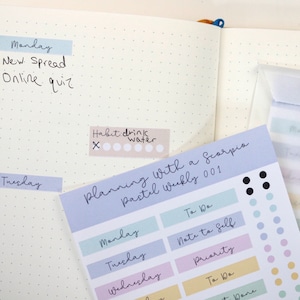 Monday
New Spread
Online quiz
Habit drink
water
X
Tuesday
Planning With a Scorpio
Pastel Weekly 001
Monday
To Do
Tuesday
Note to Self
Wednesday
Priority
To Do